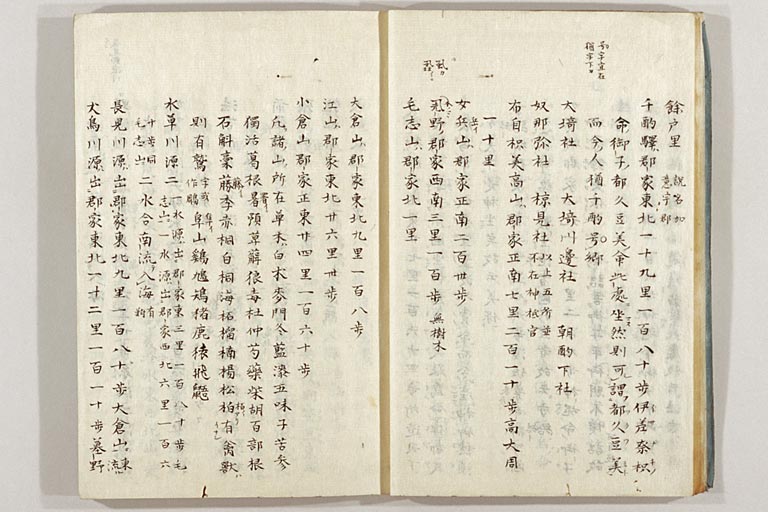 餘戸里 説名如意宇郡
千酌驛郡家東北一十九里一百八十歩伊差奈枳
命御子都久豆美命此處坐然則可謂都久豆美
而今人猶千酌号郷
大埼社 大埼川邊社 朝酌下社
奴那弥社 椋見社 以上五所並不在神祇官
布自枳美高山郡家正南七里二百一十歩高大周
一十里
女兵山郡家正南二百卅歩
野郡家西南三里一百歩 無樹木
毛志山郡家北一里
大倉山郡家東北九里一百八歩
江山郡家東北廿六里卅歩
小倉山郡家正東廿四里一百六十歩
凡諸山所在草木白朮麥門冬藍漆五味子苦参
獨活葛根署預萆薢狼毒杜仲芍藥柴胡百部根
石斛藁藤李赤桐白桐海柘榴楠楊松柏有禽獣
則有鷲 字或作鵰 隼山鷄鳩鴙猪鹿猿飛鼯
水草川源二 一水源出郡家東三里一百八十歩毛志山一水源出郡家西北六里一百六十歩同毛志山 二水合南流入海 有鮒
長見川源出郡家東北九里一百八十歩大倉山東流
大鳥川源出郡家東北一十二里一百一十歩墓野